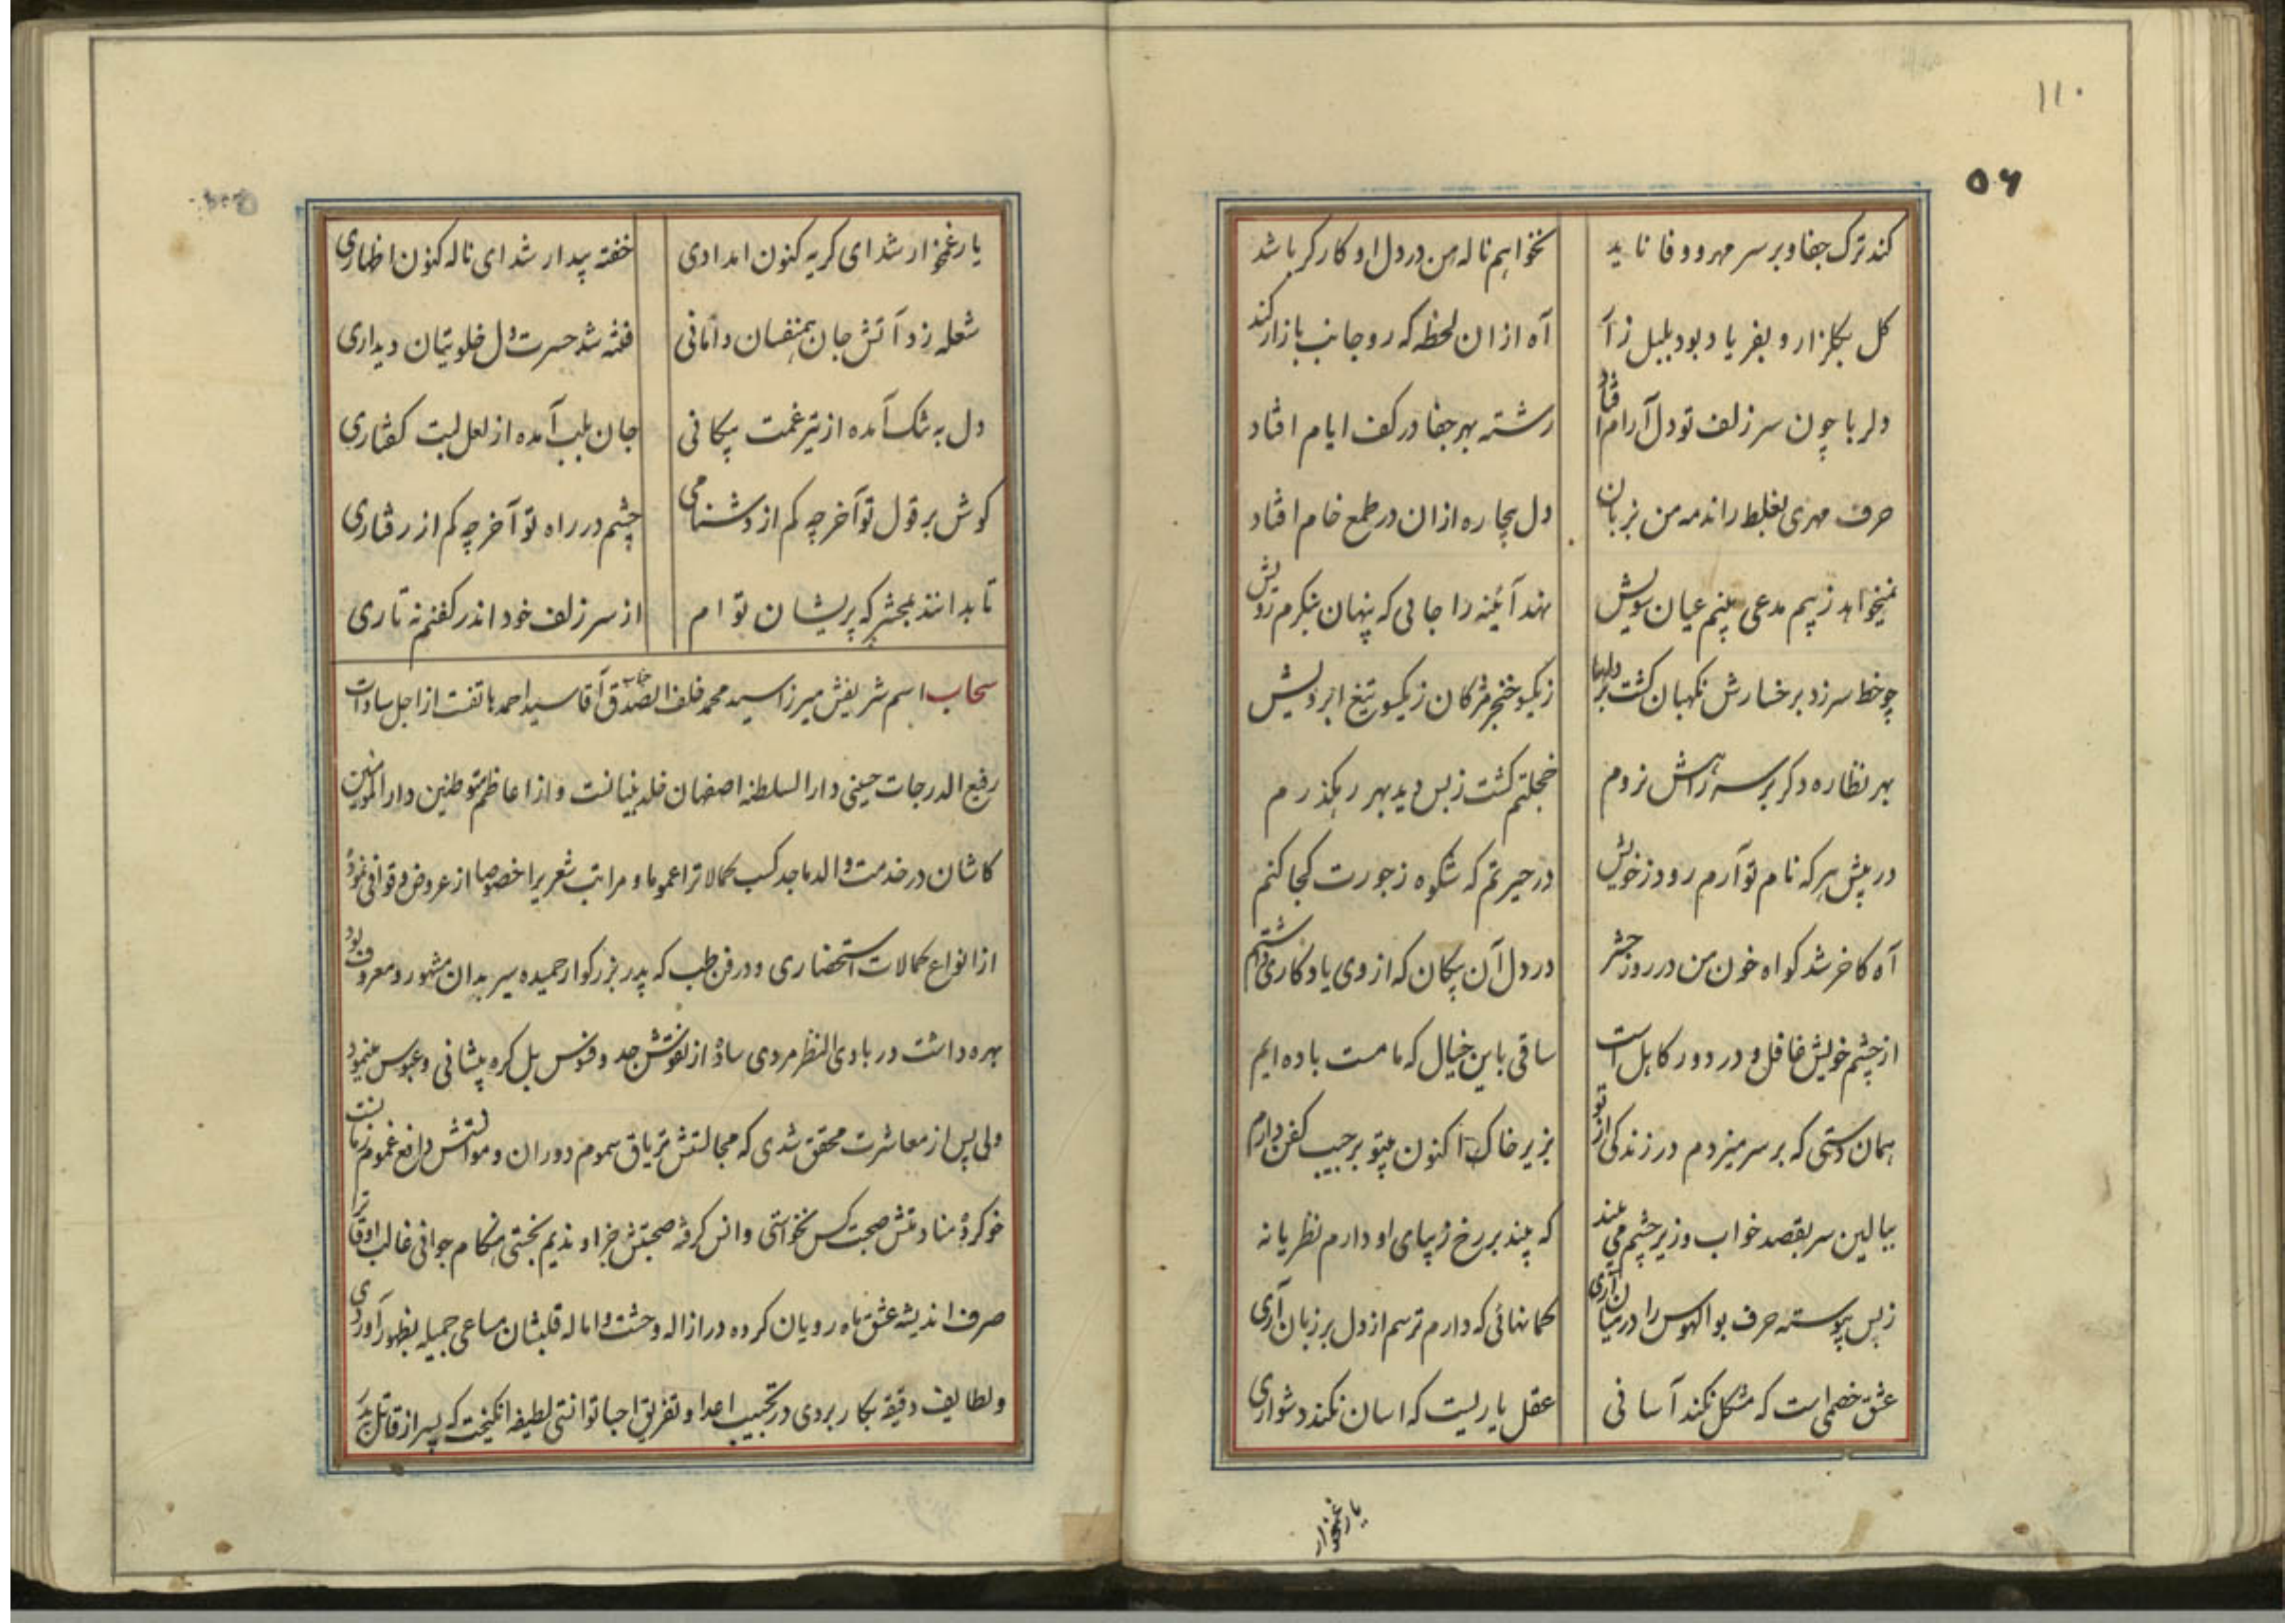 ۱۱۰
۵۶
کند ترک جفا و بر سر مهر و وفا ناید نخواهم ناله من در دل او کارگر باشد
گل بگلزار و بفریاد بود بلبل زار آه از ان لحظه که رو جانب بازار کند
دلربا چون سر زلف تو دل آرام افتاد رشته بهر جفا در کف ایام افتاد
حرف مهری بغلط راندمه من بزبان دل بیچاره ازان در طمع خام افتاد
نمیخواهد ز بیم مدعی بینم عیان سویش نهد آئینه را جائی که پنهان بنگرم رویش
چو خط سرزد بر خسارش نگهبان گشت بر دلها ز یکسو خنجر مژگان ز یکسو تیغ ابرویش
بهر نظاره دگر بر سر راهش نروم خجلتم کشت ز بس دید بهر رهگذرم
در پیش هر که نام تو آرم رود ز خویش در حیرتم که شکوه ز جورت کجا کنم
آه کاخر شد گواه خون من در روز حشر در دل آن پیکان که از وی یادگاری داشتم
از چشم خویش غافل و در دور کاهل است ساقی باین خیال که ما مست باده ایم
همان دستی که بر سر میزدم در زندگی از تو بزیر خاک اکنون بیتو بر جیب کفن دارم
ببالین سر بقصد خواب و زیر چشم می بیند که بیند بر رخ زیبای او دارم نظر یا نه
ز بس پیوسته حرف بوالهوس را در میان آری گمانهائی که دارم ترسم از دل بر زبان آری
عشق خصمی است که مشکل نکند آسانی عقل یاریست که اسان نکند دشواری
یار غمخوار
یار غمخوار شد ای گریه کنون امدادی خفته بیدار شد ای ناله کنون اظهاری
شعله زد آتش جان همنفسان دامانی فتنه شد حسرت دل خلوتیان دیداری
دل به تنک آمده از تیر غمت پیکانی جان بلب آمده از لعل لبت گفتاری
گوش بر قول تو آخر چه کم از دشنامی چشم در راه تو آخر چه کم از رفتاری
تا بدانند بمحشر که پریشان توام از سر زلف خود اندر کفنم نه تاری
سحاب اسم شریفش میرزا سید محمد خلف الصدق جناب آقا سید احمد هاتفت از اجل سادات
رفیع الدرجات حسینی دارالسلطنه اصفهان خلد بنیانست و از اعاظم متوطنین دارالمومنین
کاشان در خدمت والد ماجد کسب کمالاترا عموما و مراتب شعریرا خصوصا از عروض و قوافی نموده
از انواع کمالات استحضاری و در فن طب که پدر بزرگوار حمیده سیر بدان مشهور و معروف بود
بهره داشت در بادی النظر مردی ساده از نقوش جد و فنونش بل گره پیشانی و عبوس مینمود
ولی پس از معاشرت محقق شدی که مجالستش تریاق سموم دوران و موانستش دافع غموم زمانست
خو کرده منادمتش صحبت کس نخواستی و انس گرفته صحبتش جز او ندیم نجستی هنگام جوانی غالب اوقاترا
صرف اندیشه عشق ماه رویان کرده در ازاله وحشت و اماله قلبشان مساعی جمیله بظهور آوردی
و لطایف دقیقه بکار بردی در تحبیب اعدا و تفریق احبا توانستی لطیفه انگیخت که پسر از قاتل پدر